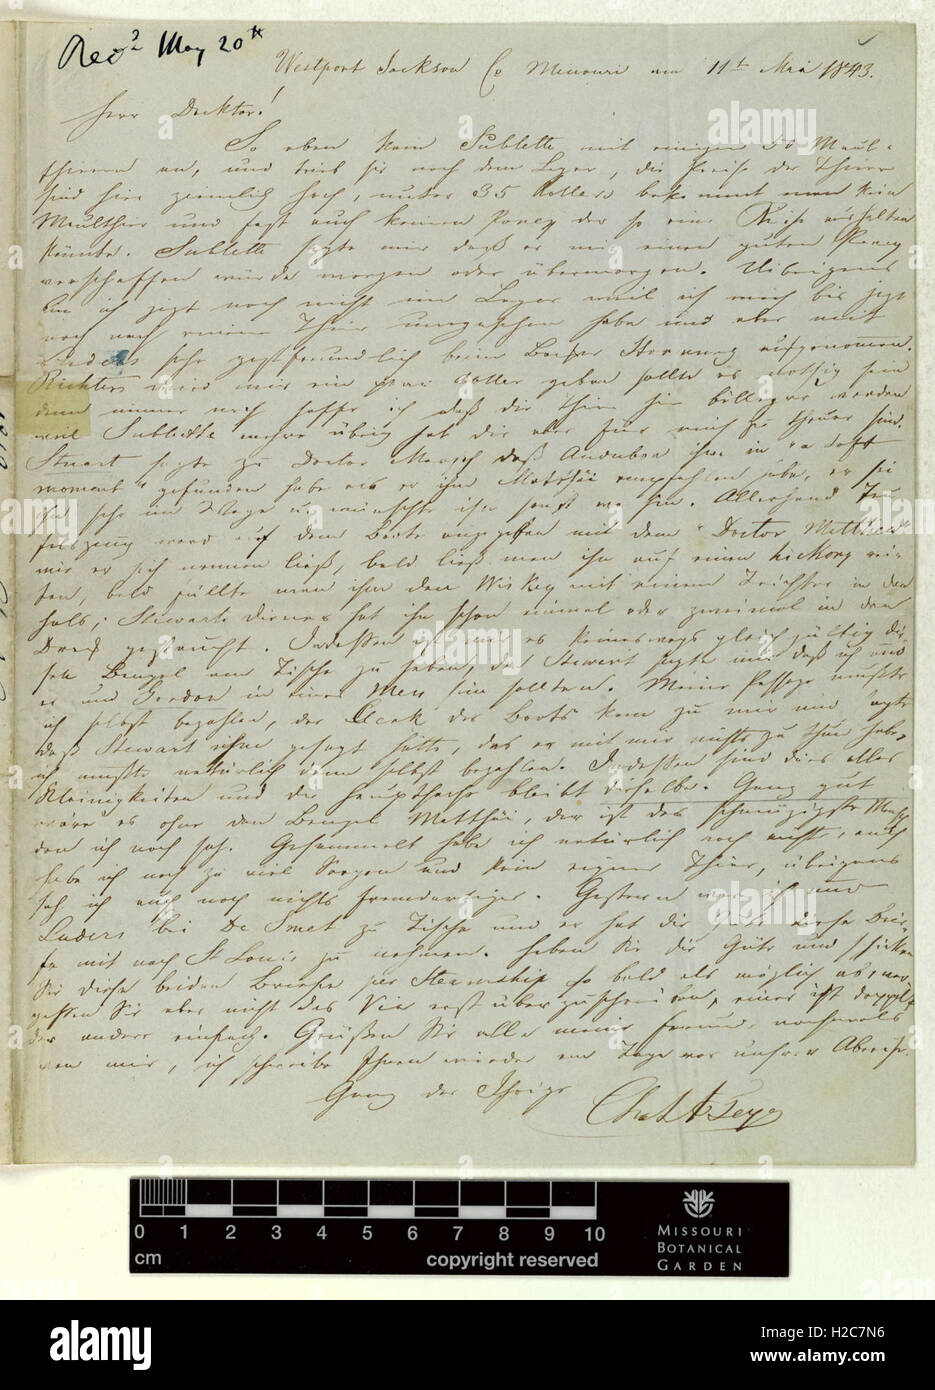 Recd May 20th
Westport Jackson Co Missouri am 11t Mai 1843.
Herr Docktor!
So eben kam Sublette mit einigen 50 Maul-
thieren an, und trieb sie nach dem Lager, die Preise der Thiere
sind hier ziemlich hoch, unter 35 Dollers bekommt man kein
Maulthier und fast auch keinen Poney der so eine Reise aushalten
könnte. Sublette sagte mir daß er mir einen guten Poney
verschaffen würde morgen oder übermorgen. Uibrigens
bin ich jezt noch nicht im Lager weil ich mich bis jezt
noch nach einem Thier umgesehen habe und aber mit
Lüders sehr gastfreundlich beim Hornung aufgenommen.
Richters wird mir ein paar Doller geben sollte es nöthig sein
denn immer noch hoffe ich daß die Thiere hier billeger werden
weil Sublette mehre übrig hat die aber für mich zu theuer sind.
Stuart sagte zu Docter Mersch daß Audubon ihn in "a soft
moment" gefunden habe als er ihm Matthäi empfahlen habe, er sei
ihm sehr im Wege u wünschte ihn sonst wo hin. Allerhand
wird auf dem Boote angegeben mit dem "Doctor Matthäi"
wie er sich nennen ließ, bald ließ man ihn auf einem hickory rei-
ten, bald füllte man ihm den Wiskey mit einem Trichter in den
Hals; Stewarts Diener hat ihn schon einmal oder zweimal in den
Dreck getaucht. Indessen ist es keineswegs gleichgültig die-
sen Bengel am Tische zu haben, da Stewart sagte mir daß ich und
er und Gordon in einer Mess sein sollten. Meine Passage mußte
ich selbst bezahlen, der Clerk des Boots kam zu mir und sagte
daß Stewart ihm gesagt hätte, das er mit mir nichts zu thun habe,
ich mußte natürlich dann selbst bezahlen. Indessen sind dies alles
Kleinigkeiten und die Hauptsache bleibt dieselbe. Ganz gut
wäre es ohne den Bengel Matthäi, der ist der schmuzigste Mensch
den ich noch sah. Gesammelt habe ich natürlich noch nichts, auch
habe ich noch zu viel Sorgen und kein eignes Thier, übrigens
sah ich auch noch nichts fremdartiges. Gestern war ich und
Luders bei De Smet zu Tische und er hat die Güte diese Brie-
fe mit nach St Louis zu nehmen. Haben Sie die Güte und schicken
Sie diese beiden Briefe per Steamship so bald als möglich ab, ver-
gessen Sie aber nicht das Via erst überzuschreiben, einer ist doppelt
der andere einfach. Grüßen Sie alle meine Freunde nochmals
von mir, ich schreibe Ihnen wieder ein Tage vor unsrer Abreise.
Ganz der Ihrige
Chas A Geyer
0 1 2 3 4 5 6 7 8 9 10
cm
copyright reserved
MISSOURI
BOTANICAL
GARDEN
alamy
Image ID: H2C7N6
www.alamy.com